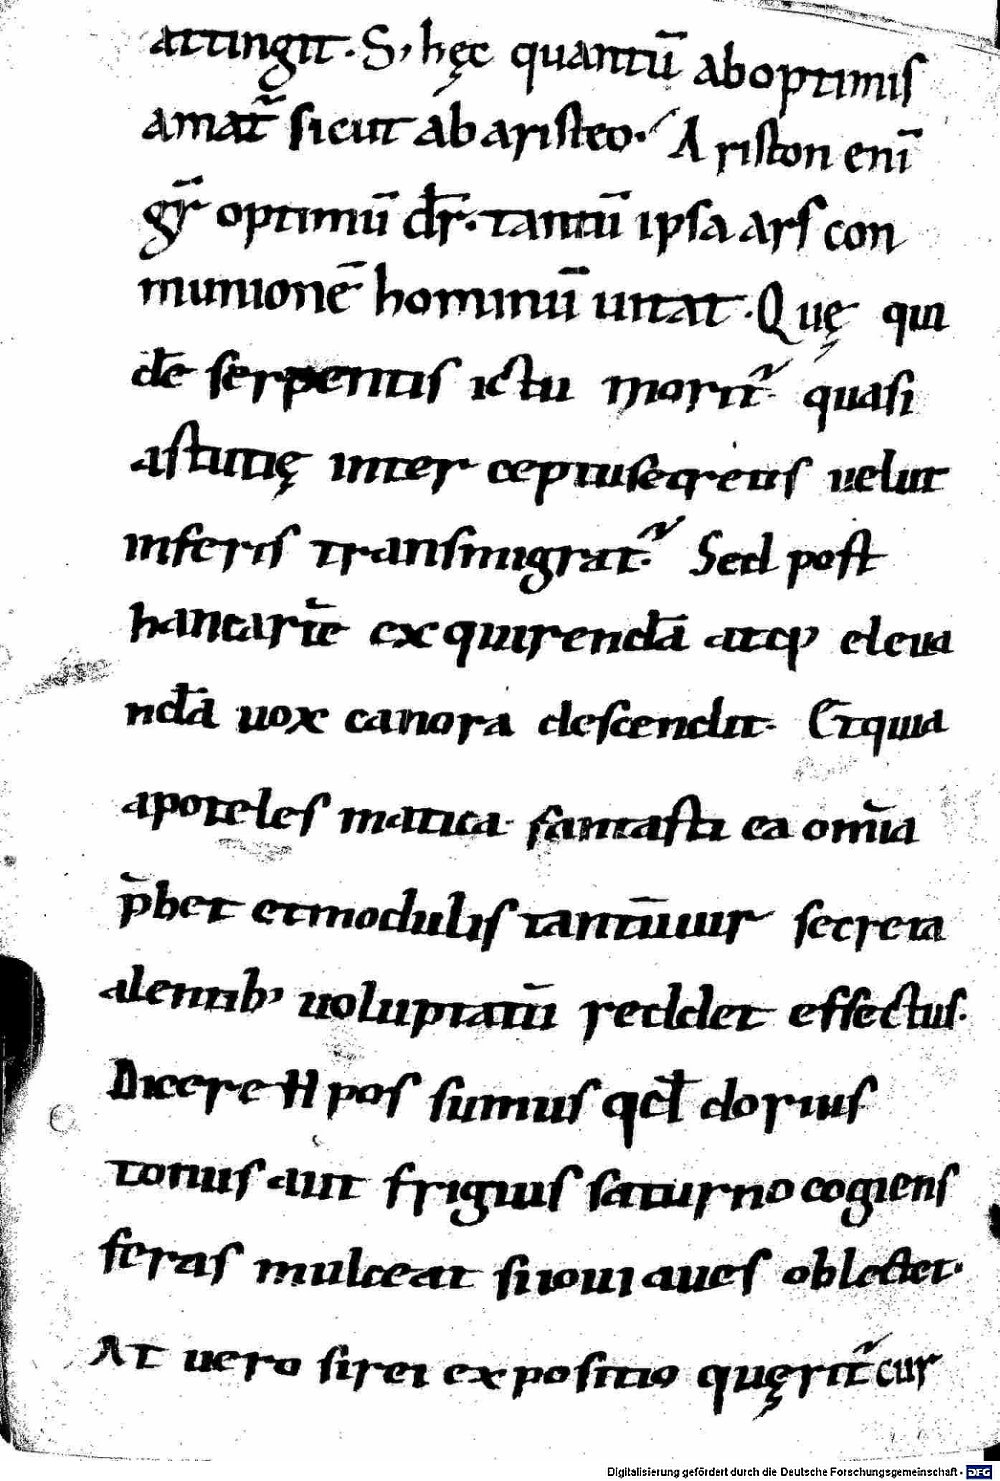 attingit. S, hęc quantū ab optimis
amat᷑ sicut ab aristeo. Ariston eni̅
gr̅ optimū dr̅. tantū ipsa ars con
munionē hominū uitat. Quę qui
dē serpentis ictu morit᷑. quasi
astutię inter ceptu secretis uelut
inferis transmigrat᷑. Sed post
hanc artē exquirendā atq; eleua
ndā uox canora descendit. Et quia
apoteles matica. fantasti ea om̅ia
p̄bet et modulis tantū uir secreta
alentib; uoluptatū reddet effectus.
Dicere ħ pos sumus qđ dorius
tonus aut frigius saturno cogiens
feras mulceat si ioui aues oblectet.
At uero si rei expositio quęrit᷑ cur
Digitalisierung gefördert durch die Deutsche Forschungsgemeinschaft - DFG